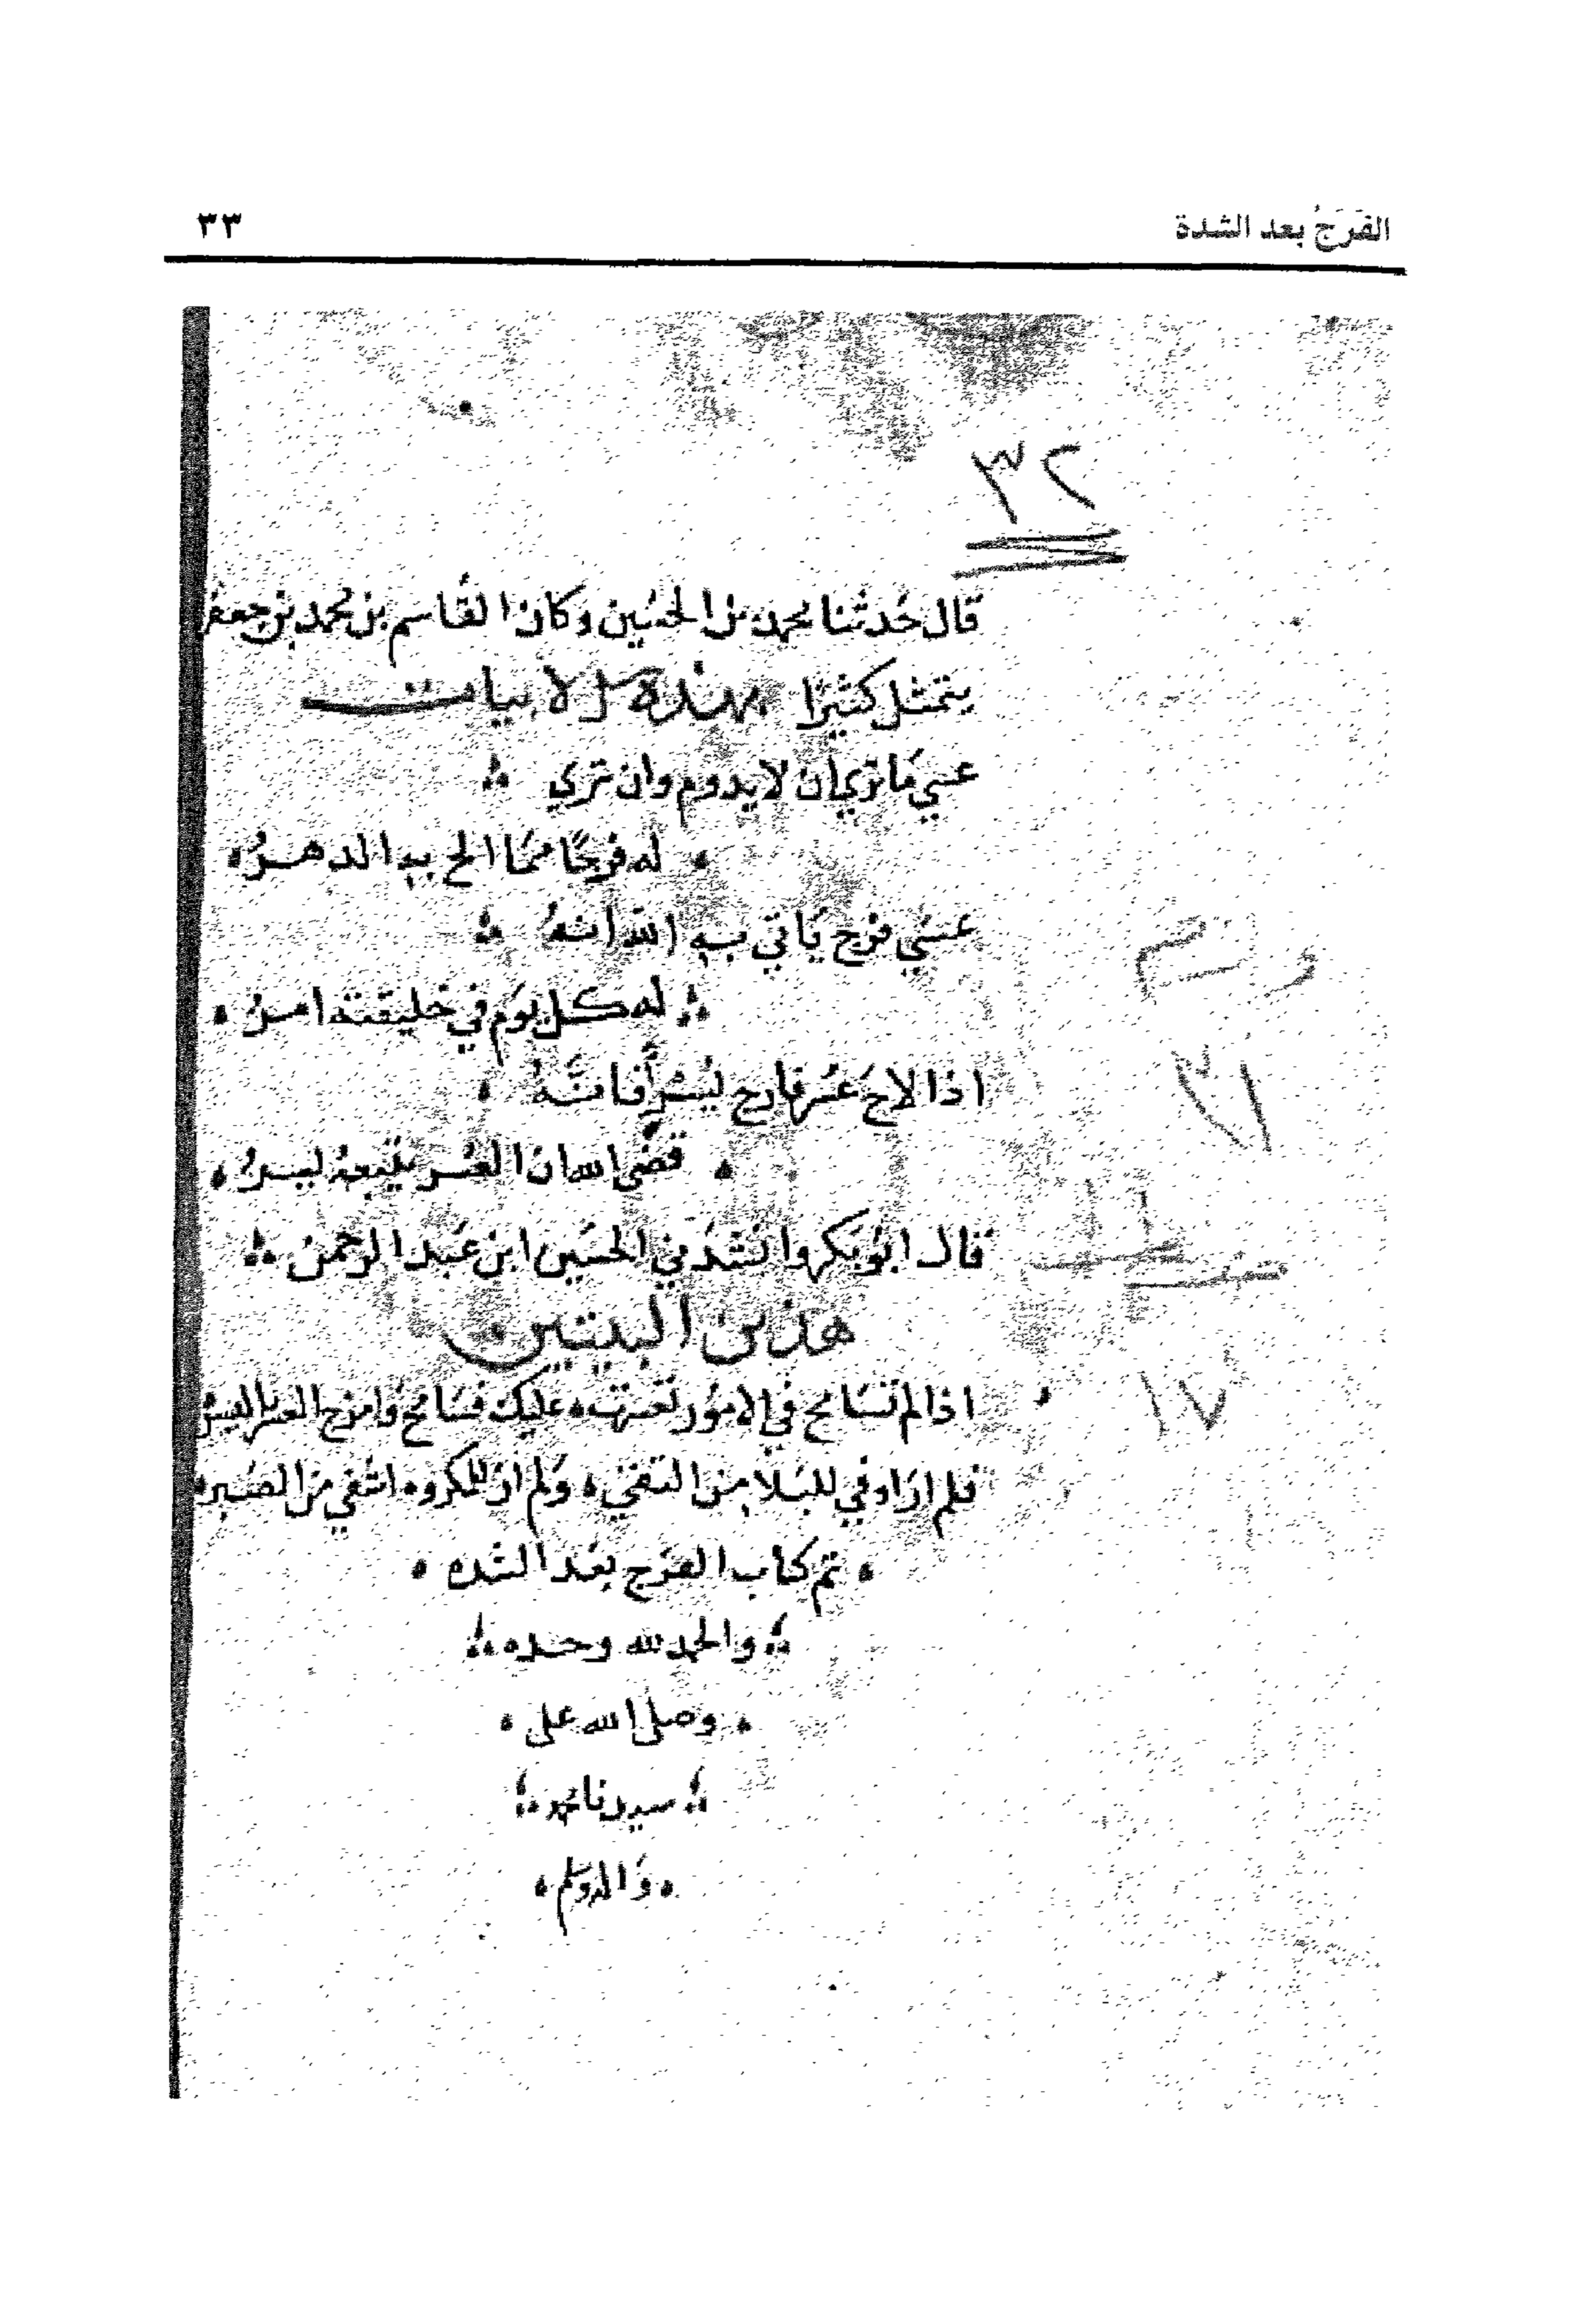 الفَرَجُ بعد الشدة
٣٣
٣٢
قال حدثنا محمد بن الحسين وكان القاسم بن محمد بن جعفر
يتمثل كثيرًا بهذه الابيات
عسي ما تري ان لا يدوم وان تري
له فرجًا مما الح به الدهرُ
عسي فرج ياتي به الله انهُ
له كل يوم في خليقته امرُ
اذا لاح عسر فارج يسرا فانَّهُ
قضى الله ان العسر يتبعهُ يسرُ
قال ابو بكر وانشدني الحسين ابن عبد الرحمن
هذين البيتين
اذا لم تسامح في الامور تعسرت عليك فسامح وامزج العسر باليسر
فلم ار اوفي للبلا من التقي ولم ار للمكروه اشفي من الصبر
تم كتاب الفرج بعد الشده
والحمد لله وحده
وصلى الله على
سيدنا محمد
واله وسلم